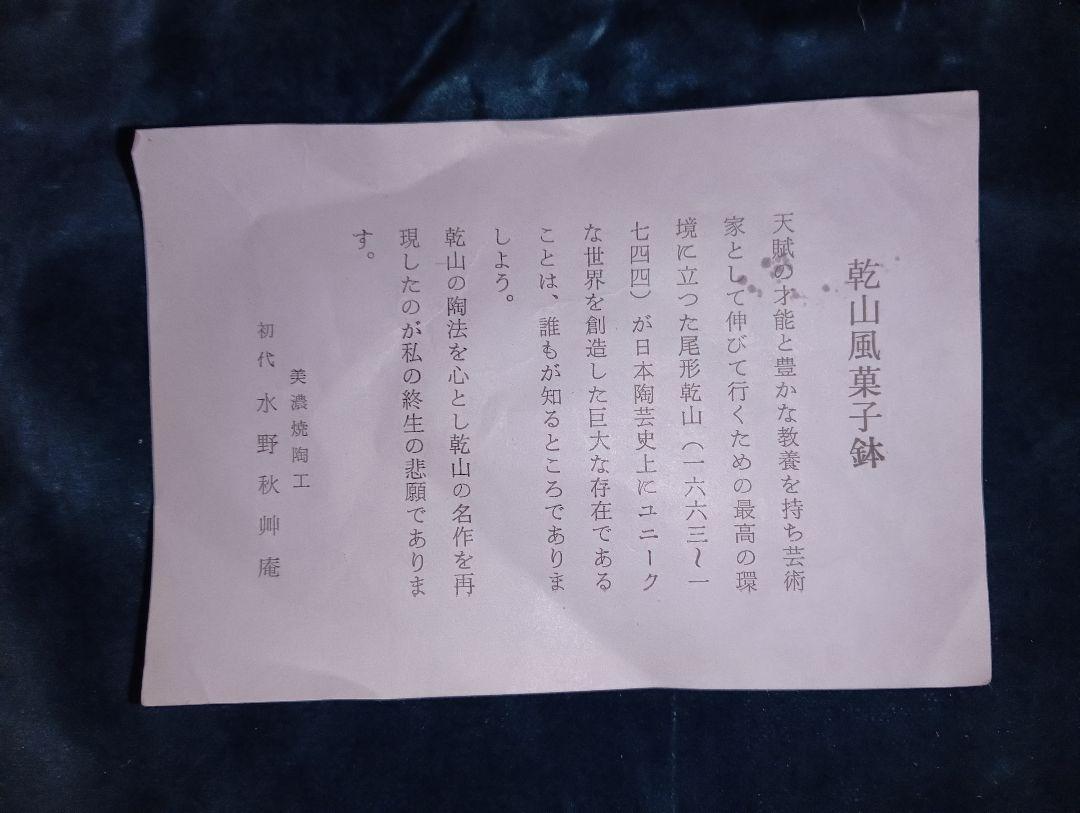 乾山風菓子鉢
天賦の才能と豊かな教養を持ち芸術
家として伸びて行くための最高の環
境に立つた尾形乾山（一六六三〜一
七四四）が日本陶芸史上にユニーク
な世界を創造した巨大な存在である
ことは、誰もが知るところでありま
しよう。
乾山の陶法を心とし乾山の名作を再
現したのが私の終生の悲願でありま
す。
美濃焼陶工
初代 水野秋艸庵